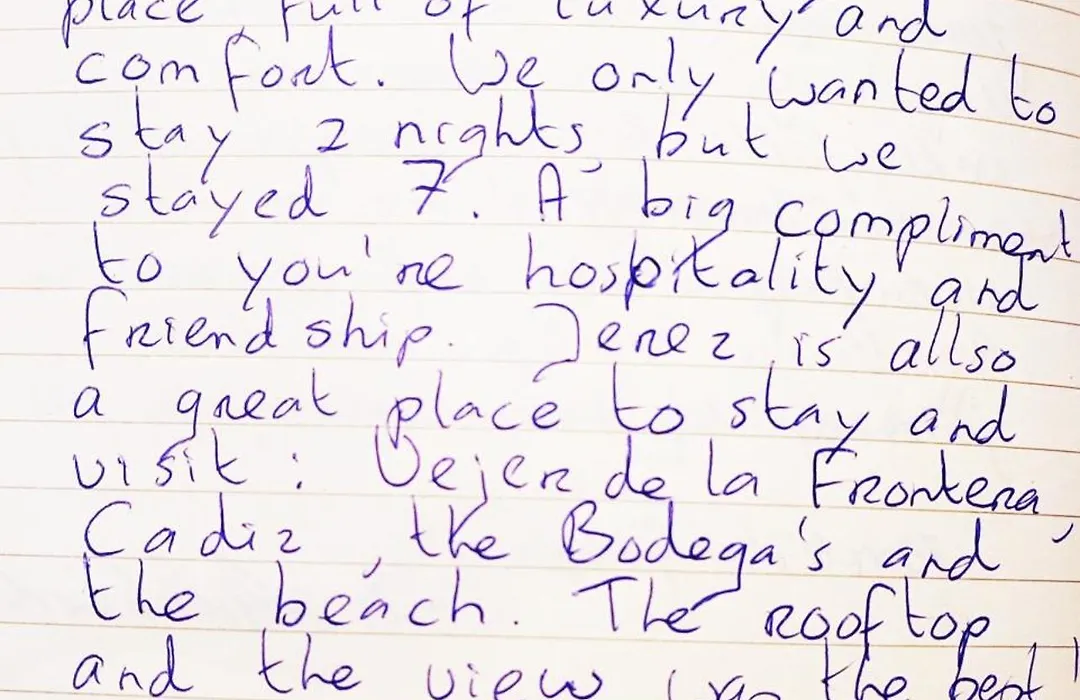 place, full of luxury and
comfort. We only wanted to
stay 2 nights, but we
stayed 7. A big compliment
to you're hospitality and
friendship. Jerez is allso
a great place to stay and
visit: Vejer de la Frontera,
Cadiz, the Bodega's and
the beach. The rooftop
and the view was the best!